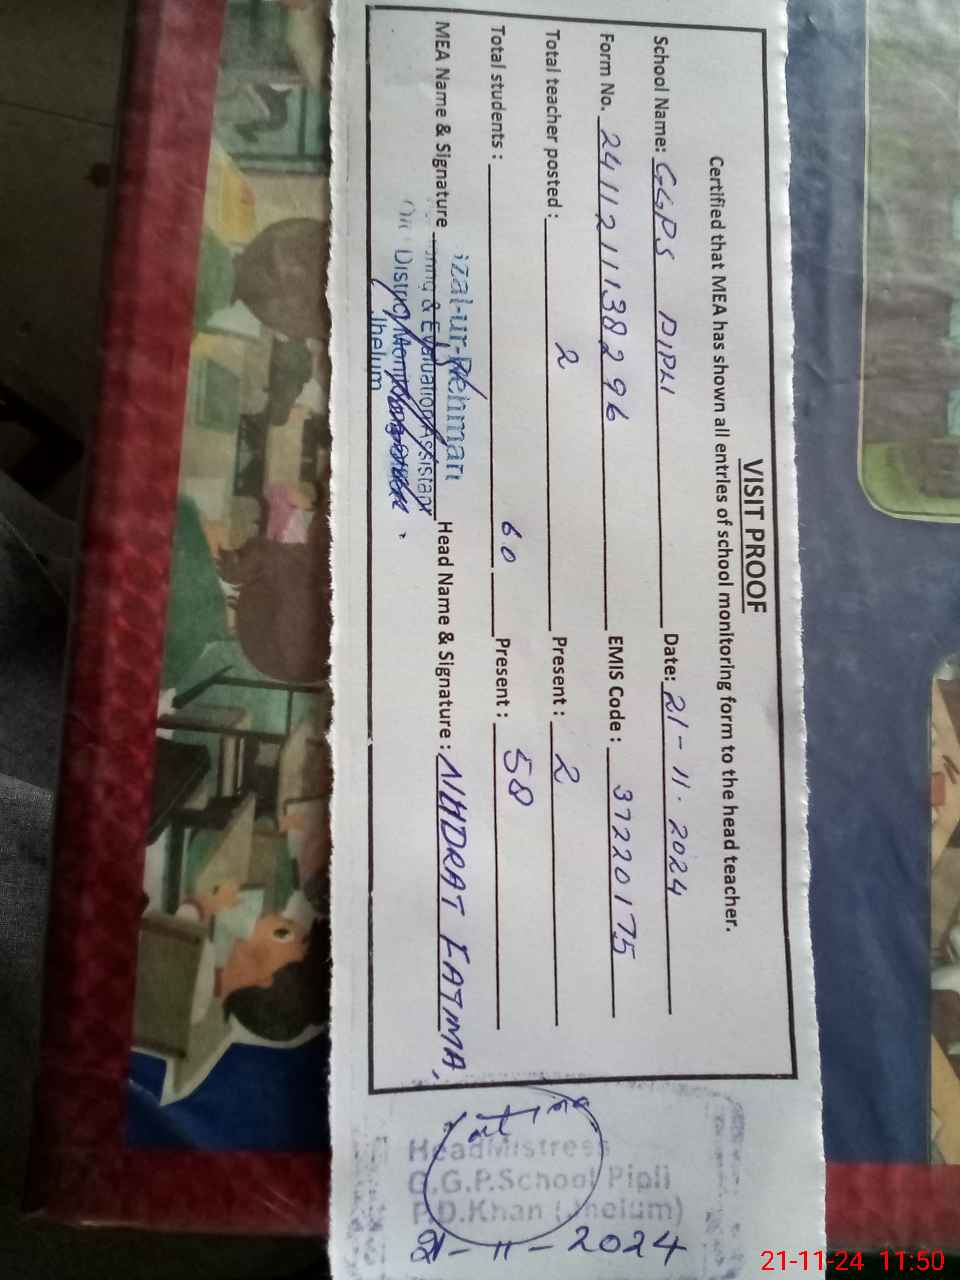 VISIT PROOF
Certified that MEA has shown all entries of school monitoring form to the head teacher.
School Name: GGPS PIPLI Date: 21-11-2024
Form No. 241121138296 EMIS Code: 37220175
Total teacher posted: 2 Present: 2
Total students: 60 Present: 58
MEA Name & Signature Head Name & Signature: NUDRAT FATIMA
izal-ur-Rehman
& Evaluation Assistant
District Monitoring
Jhelum
HeadMistress
G.G.P.School Pipli
P.D.Khan (Jhelum)
21-11-2024
21-11-24 11:50